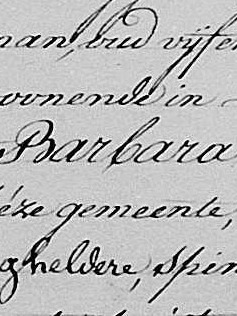 man, oud vijfen
woonende in
Barbara
déze gemeente,
gheldere, spin